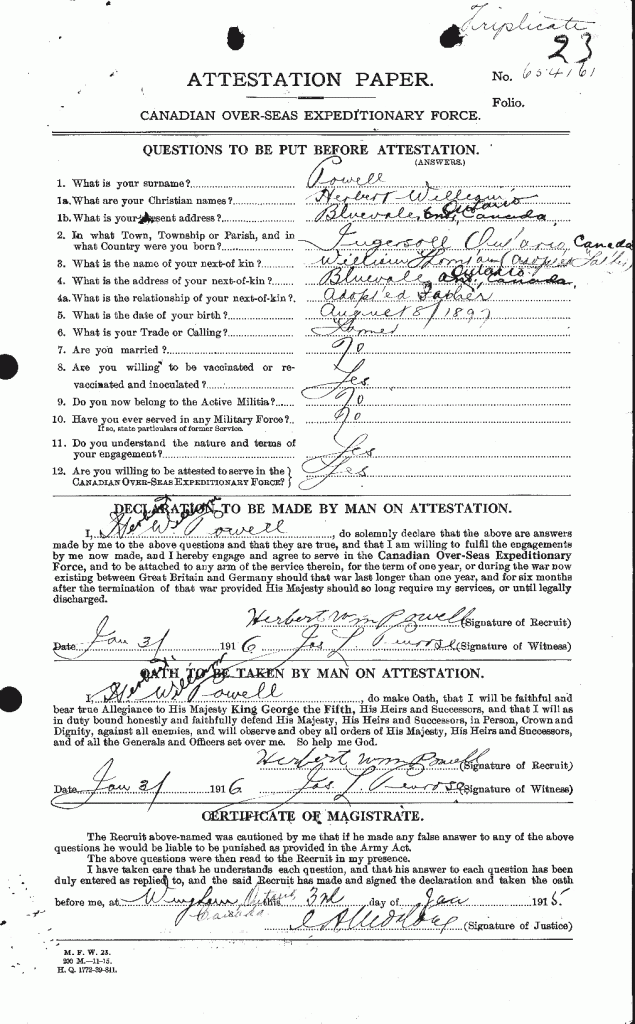 Triplicate
23
ATTESTATION PAPER.
No. 654161
Folio.
CANADIAN OVER-SEAS EXPEDITIONARY FORCE.
QUESTIONS TO BE PUT BEFORE ATTESTATION.
(ANSWERS.)
1. What is your surname? Powell
1a. What are your Christian names? Herbert William
1b. What is your present address? Bluevale, Ontario Canada
2. In what Town, Township or Parish, and in
what Country were you born? Ingersoll Ontario, Canada
3. What is the name of your next-of kin? William (Adopted Father)
4. What is the address of your next-of-kin? Bluevale, Ontario Canada
4a. What is the relationship of your next-of-kin? Adopted Father
5. What is the date of your birth? August 8/1897
6. What is your Trade or Calling?
7. Are you married? No
8. Are you willing to be vaccinated or re-
vaccinated and inoculated? Yes
9. Do you now belong to the Active Militia? No
10. Have you ever served in any Military Force? No
If so, state particulars of former Service.
11. Do you understand the nature and terms of
your engagement? Yes
12. Are you willing to be attested to serve in the
CANADIAN OVER-SEAS EXPEDITIONARY FORCE? Yes
DECLARATION TO BE MADE BY MAN ON ATTESTATION.
I, Herbert William Powell, do solemnly declare that the above are answers
made by me to the above questions and that they are true, and that I am willing to fulfil the engagements
by me now made, and I hereby engage and agree to serve in the Canadian Over-Seas Expeditionary
Force, and to be attached to any arm of the service therein, for the term of one year, or during the war now
existing between Great Britain and Germany should that war last longer than one year, and for six months
after the termination of that war provided His Majesty should so long require my services, or until legally
discharged.
Herbert Wm Powell (Signature of Recruit)
Date Jan 3/ 1916 Jas L. (Signature of Witness)
OATH TO BE TAKEN BY MAN ON ATTESTATION.
I, Herbert William Powell, do make Oath, that I will be faithful and
bear true Allegiance to His Majesty King George the Fifth, His Heirs and Successors, and that I will as
in duty bound honestly and faithfully defend His Majesty, His Heirs and Successors, in Person, Crown and
Dignity, against all enemies, and will observe and obey all orders of His Majesty, His Heirs and Successors,
and of all the Generals and Officers set over me. So help me God.
Herbert Wm Powell (Signature of Recruit)
Date Jan 3/ 1916 Jas L. (Signature of Witness)
CERTIFICATE OF MAGISTRATE.
The Recruit above-named was cautioned by me that if he made any false answer to any of the above
questions he would be liable to be punished as provided in the Army Act.
The above questions were then read to the Recruit in my presence.
I have taken care that he understands each question, and that his answer to each question has been
duly entered as replied to, and the said Recruit has made and signed the declaration and taken the oath
before me, at Wingham, Ontario this 3rd day of Jan 1915.
Canada
(Signature of Justice)
M. F. W. 23.
200 M.—11-15.
H. Q. 1772-39-841.